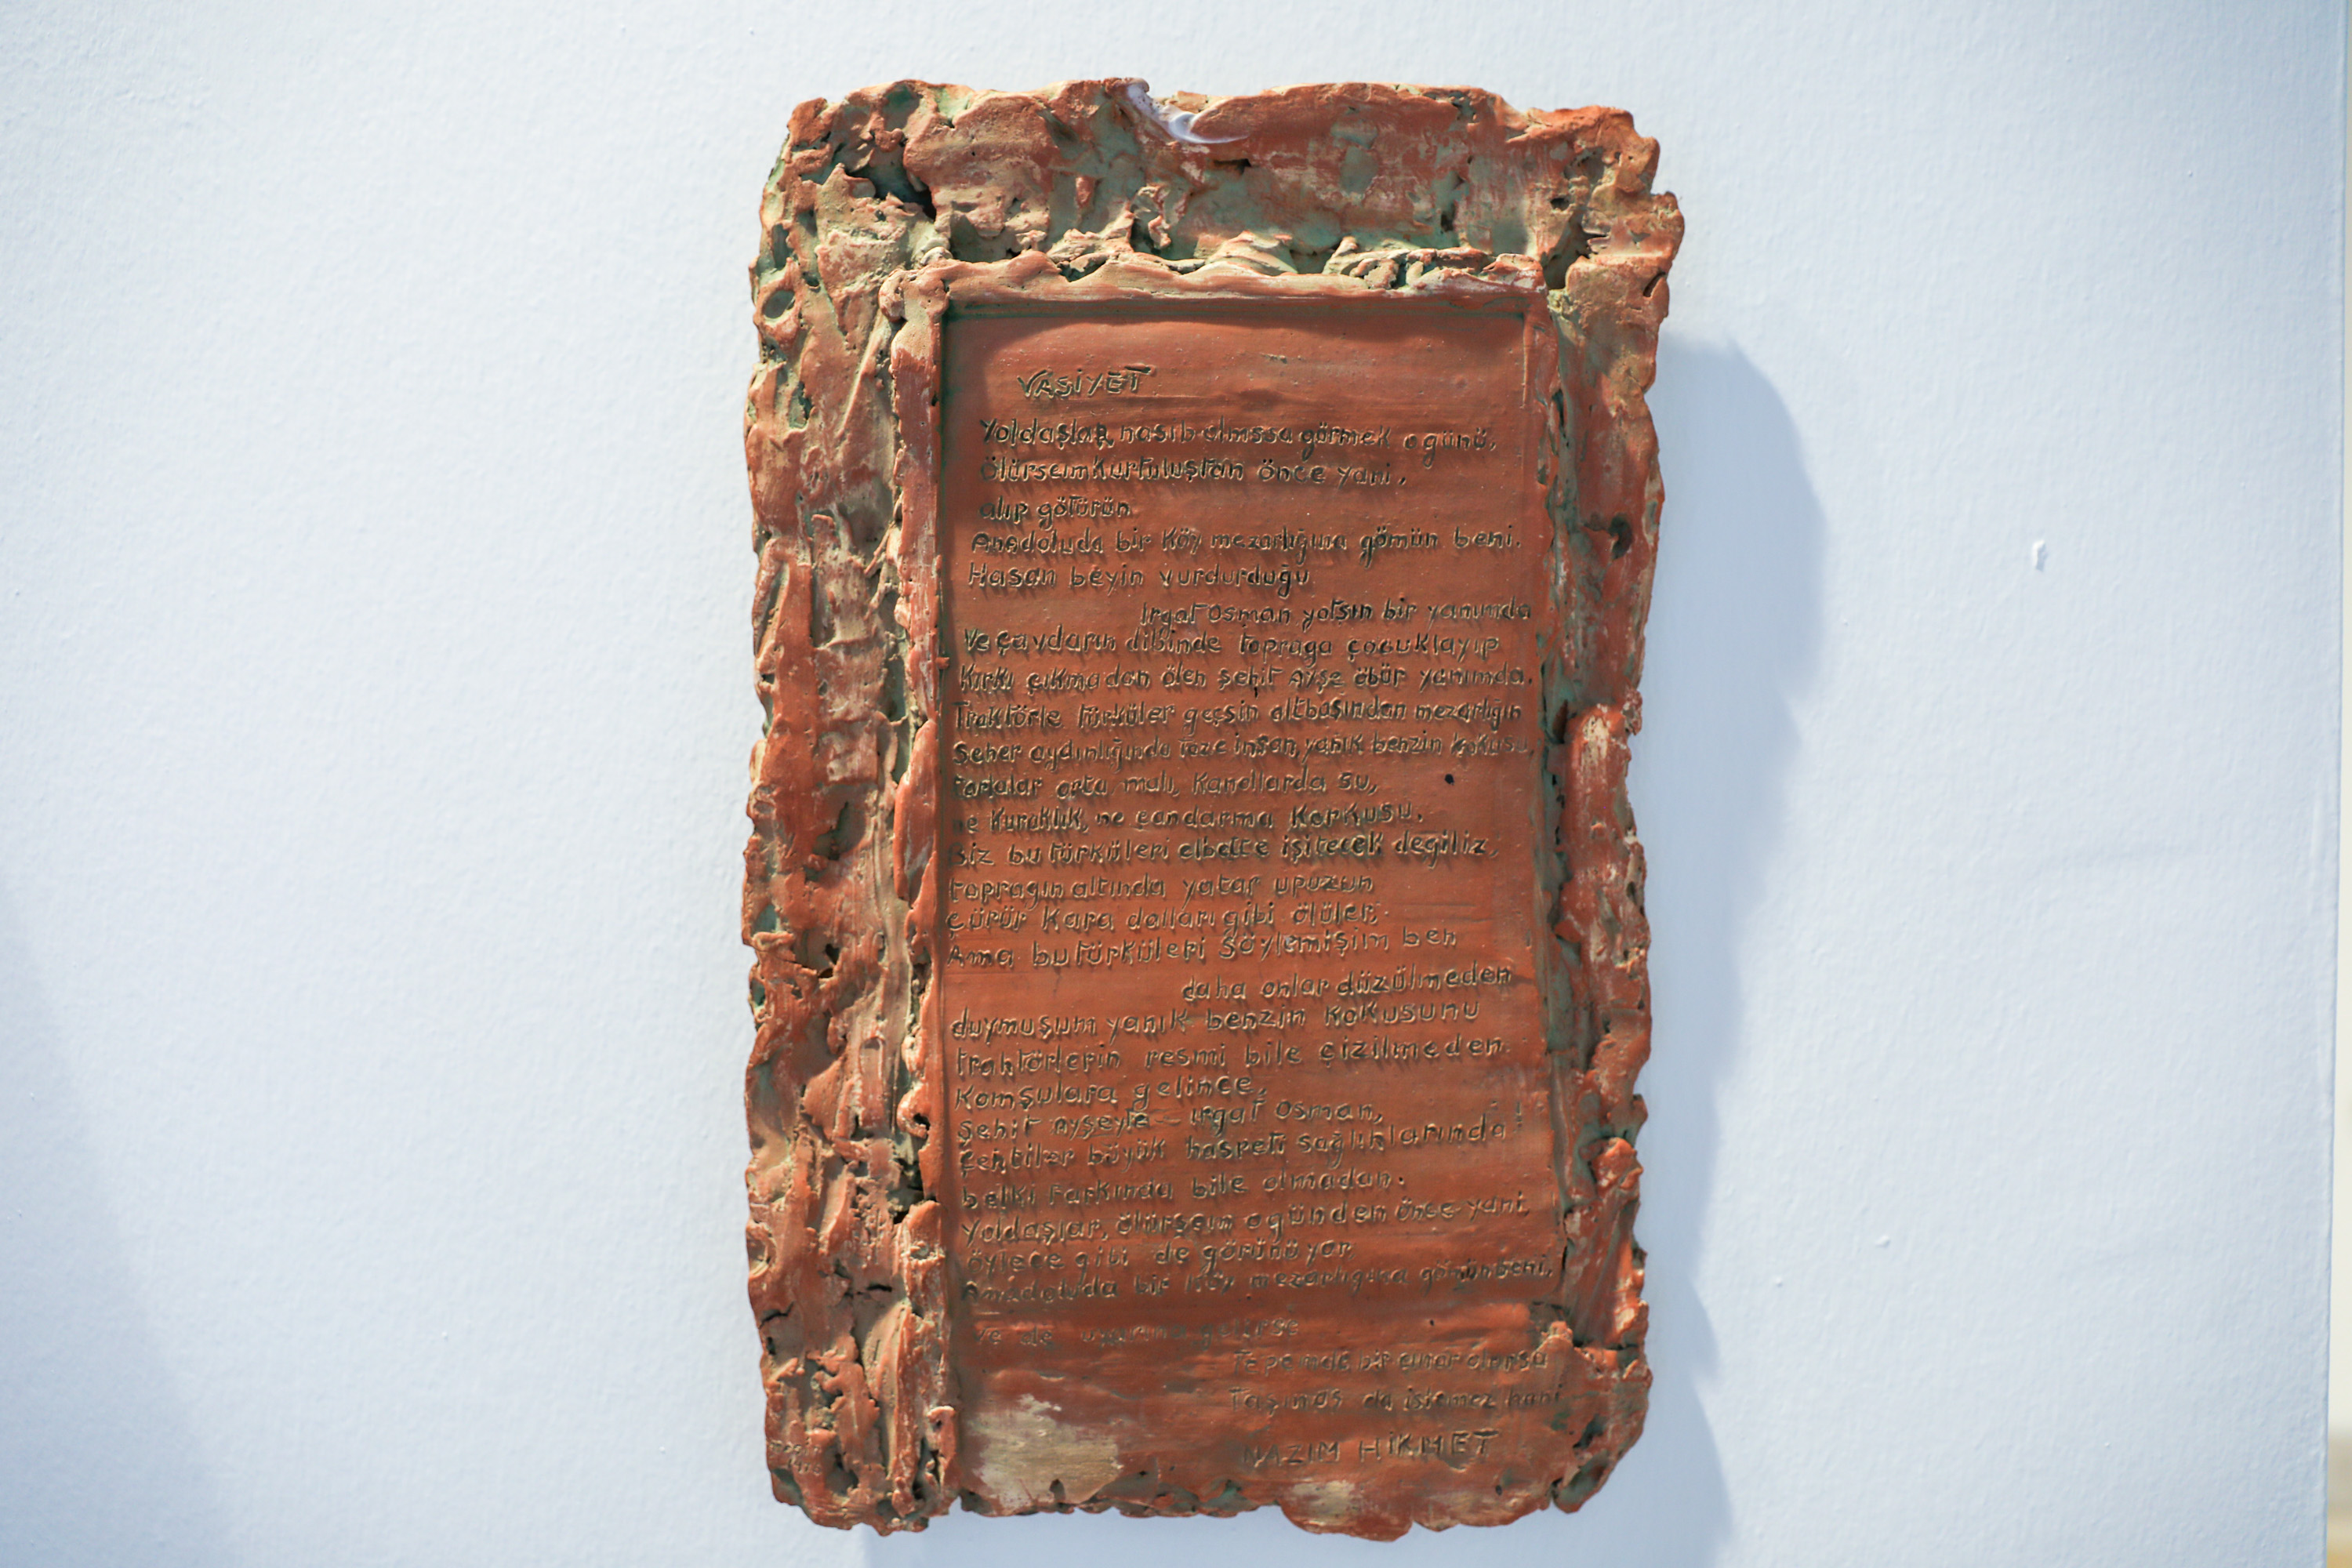 VASİYET
Yoldaşlar, nasib olmssa görmek o günü,
Ölürsem kurtuluştan önce yani,
alıp götürün
Anadoluda bir köy mezarlığına gömün beni.
Hasan beyin vurdurduğu
Irgat Osman yatsın bir yanımda
Ve çavdarın dibinde toprağa çocuklayıp
Kırkı çıkmadan ölen şehit Ayşe öbür yanımda.
Traktörle türküler geçsin altbaşından mezarlığın
Seher aydınlığında taze insan, yanık benzin kokusu,
tarlalar orta malı, kanallarda su,
ne kuraklık, ne candarma korkusu.
Biz bu türküleri elbette işitecek değiliz,
toprağın altında yatar upuzun
çürür kara dalları gibi ölüler,
Ama bu türküleri söylemişim ben
daha onlar düzülmeden
duymuşum yanık benzin kokusunu
trahtörlerin resmi bile çizilmeden.
Komşulara gelince,
Şehit Ayşeyle ırgat Osman,
Çektiler büyük hasreti sağlıklarında!
belki farkında bile olmadan.
Yoldaşlar, ölürsem o günden önce yani,
öylece gibi de görünüyor
Anadoluda bir köy mezarlığına gömün beni.
ve de uyarına gelirse
tepemde bir çınar olursa
taş maş da istemez hani
NAZIM HİKMET